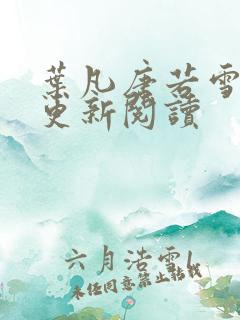 葉凡唐若雪
更新閱讀
六月浩雪l
未經同意禁止轉載